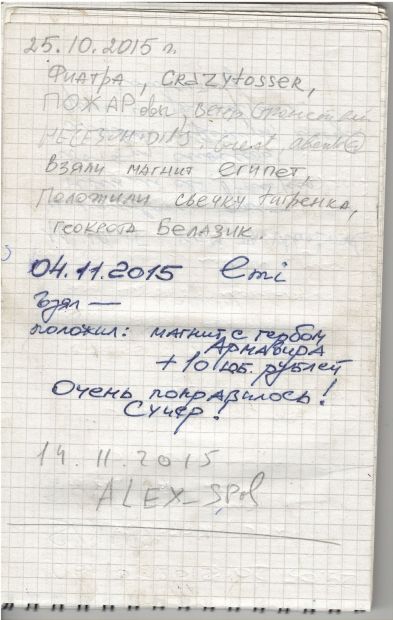 25.10.2015 г.
Фиатра, Crazytosser,
ПОЖАРовы, ветер странствий
взяли магнит египет,
Положили свечку тигренка,
геокрота Белазик.
04.11.2015 Emi
Взял —
положил: магнит с гербом
Армавира
+10 юб. рублей
Очень понравилось!
Супер!
14.11.2015
ALEX_SPb